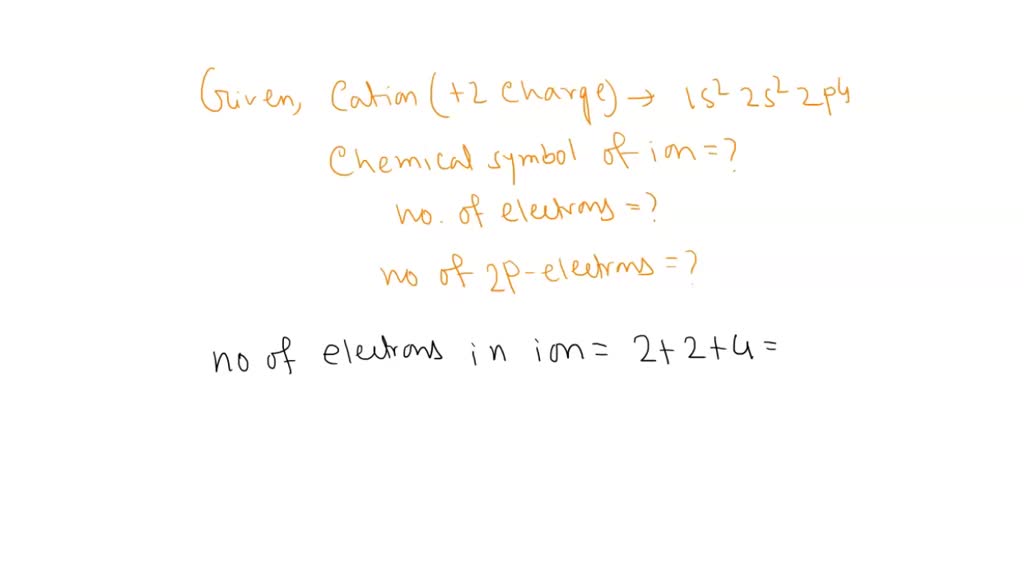 Given, Cation (+2 charge) → 1s² 2s² 2p4
Chemical symbol of ion = ?
no. of electrons = ?
no of 2p-electrons = ?
no of electrons in ion = 2+2+4 =